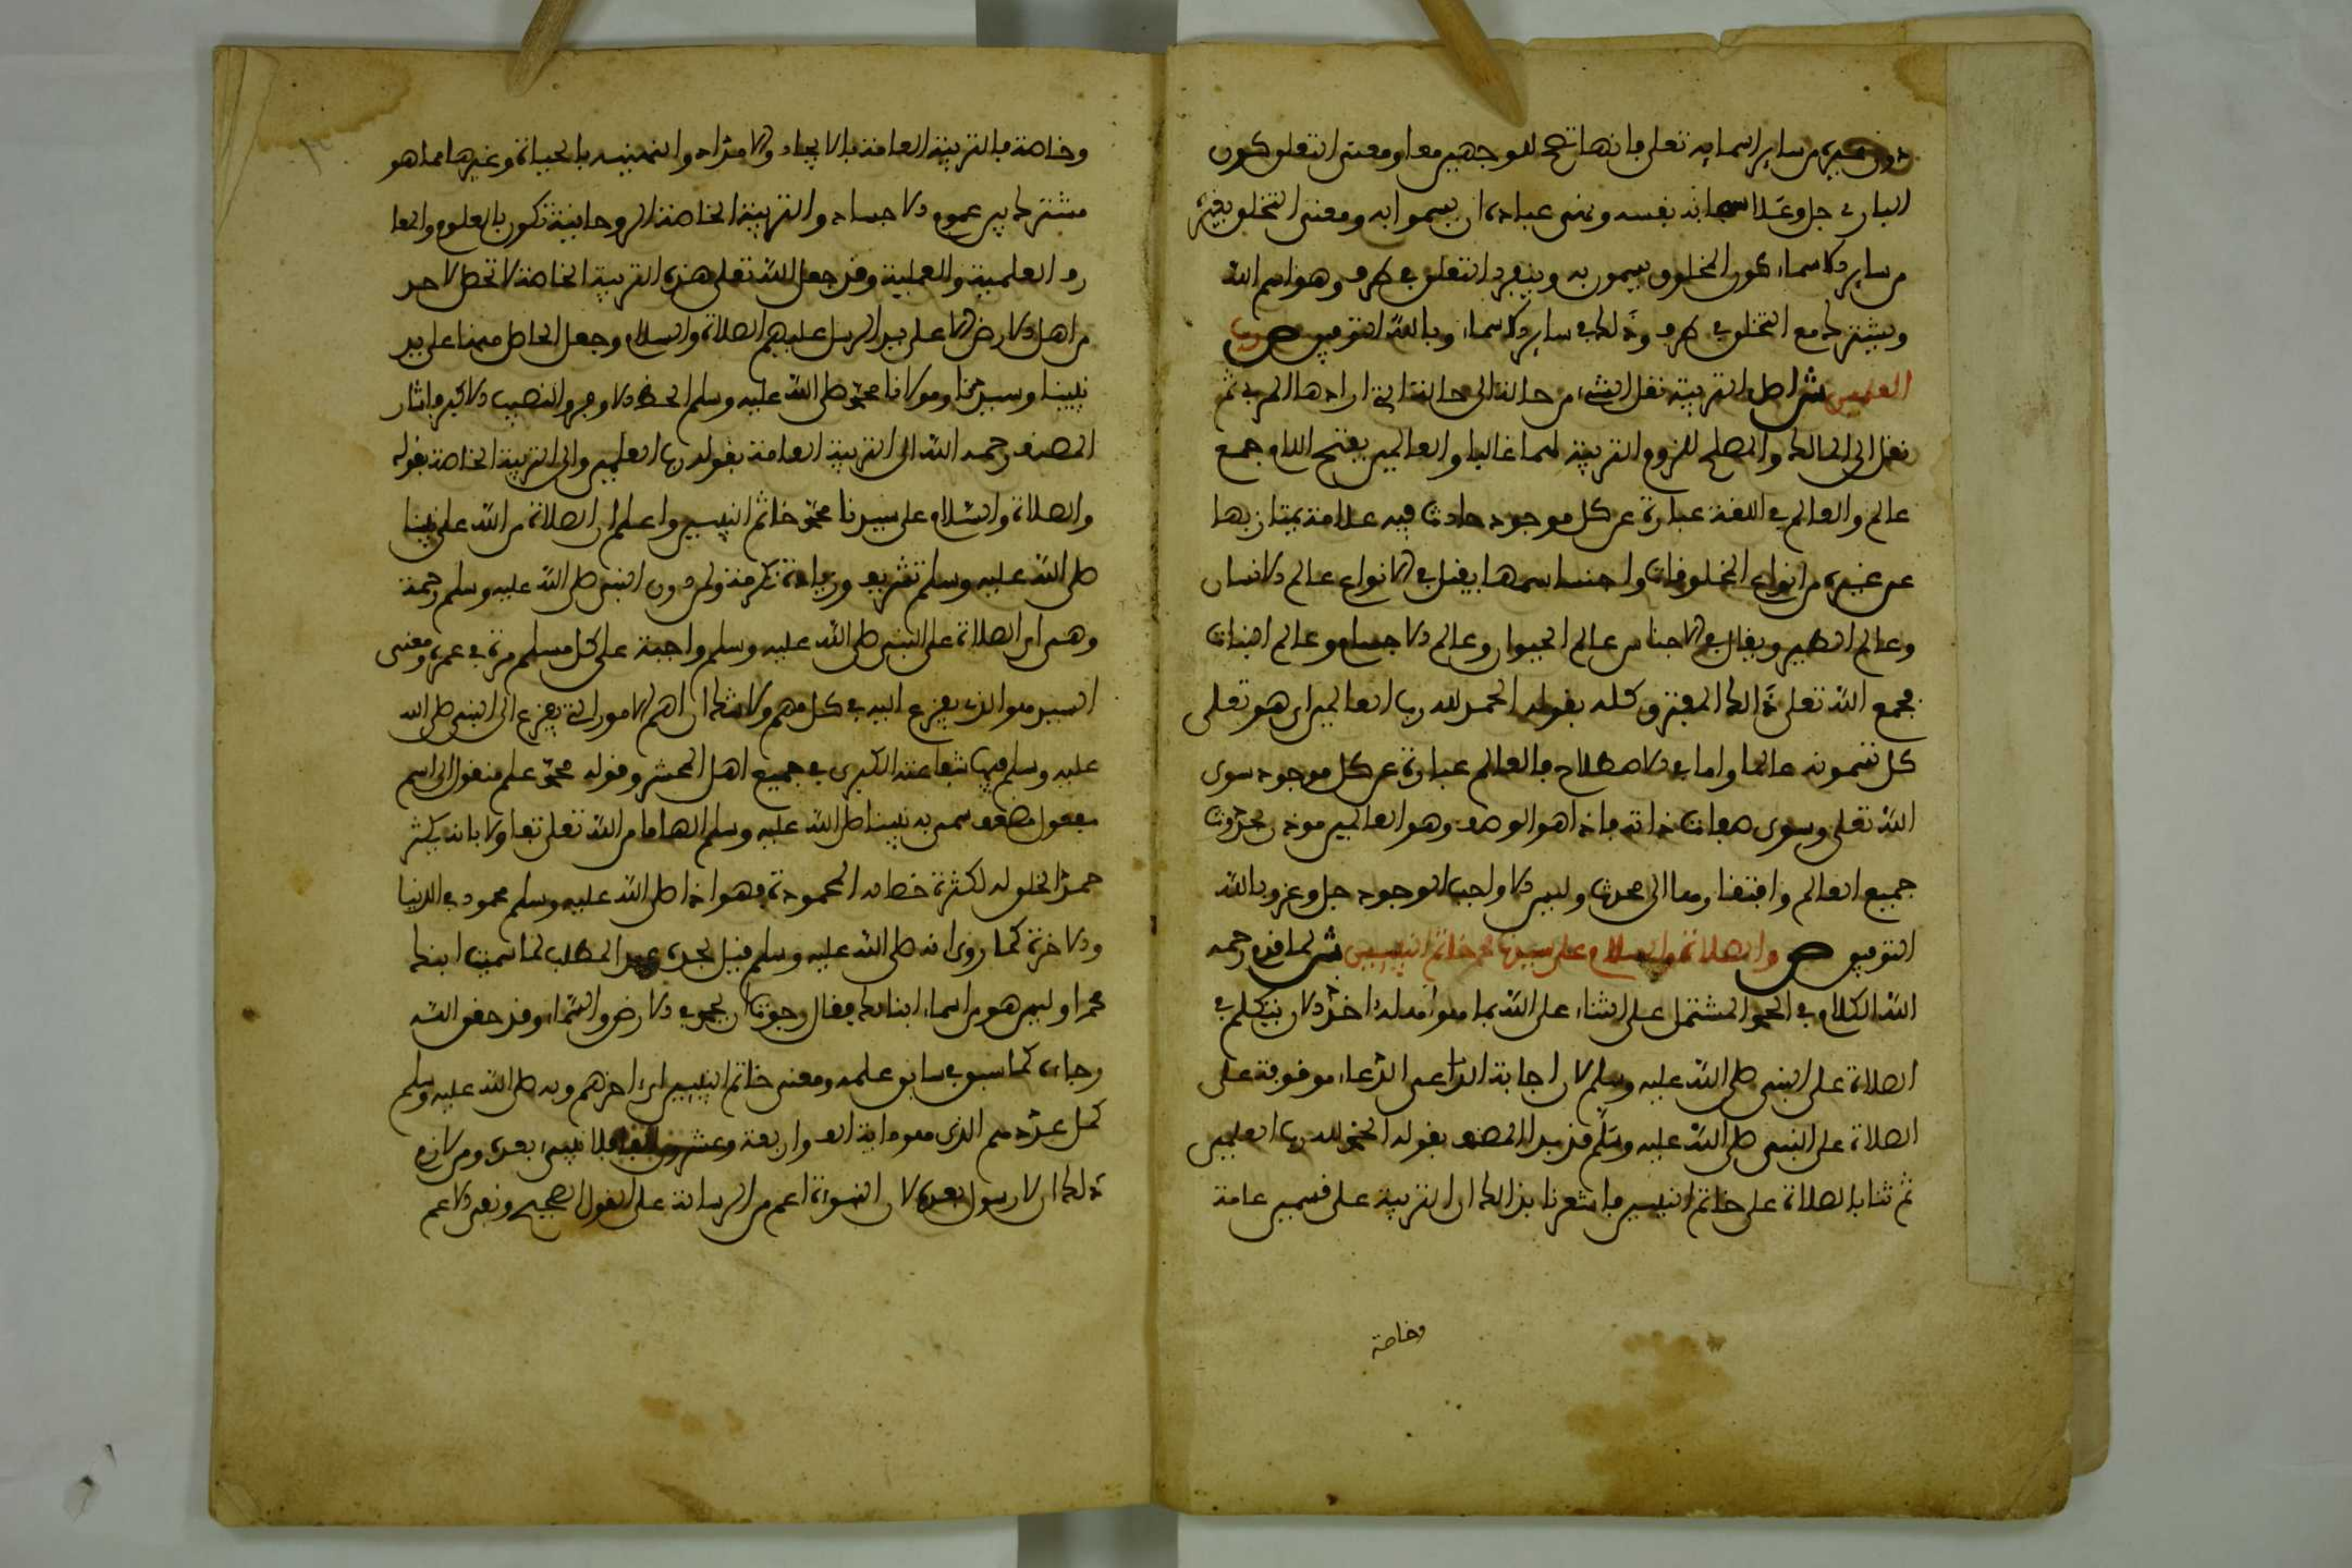 دون غيره من ساير اسمايه تعلى فانها تصح للوجهين معا ومعنى التعلق كون
الباري جل وعلا سما به نفسه ونهى عباده ان يسموا به ومعنى التخلق بغيره
من ساير الاسماء كون المخلوق يسمون به وينفرد التعلق في طرف وهو اسم الله
ويشترك مع التخلق في طرف وذلك في ساير الاسماء وبالله التوفيق ص رب
العلمين ش اصل التربية نقل الشيء من حالة الى حالة التي ارادها المربي ثم
نقل الى المالك والمصلح للزوم التربية لهما غالبا والعالمين بفتح اللام جمع
عالم والعالم في اللغة عبارة عن كل موجود حادث فيه علامة يمتاز بها
عن غيره من انواع المخلوقات واجناسها يقال في الانواع عالم الانسان
وعالم الطير ويقال في الاجناس عالم الحيوان وعالم الاجسام وعالم النبات
فجمع الله تعلى ذالك المفترق كله بقوله الحمد لله رب العالمين اي هو تعلى
كل تسمونه عالما واما في الاصطلاح فالعالم عبارة عن كل موجود سوى
الله تعلى وسوى صفات ذاته فاذا هو الوصف وهو العالمين موذن بحدوث
جميع العالم وافتقاره معا الى محدث وليس الا واجب الوجود جل وعز وبالله
التوفيق ص والصلاة والسلام على سيدنا محمد خاتم النبيين ش لما قدم رحمه
الله الكلام في الحمد المشتمل على الثناء على الله بما هو اهله اخذ الان يتكلم في
الصلاة على النبي صلى الله عليه وسلم لان اجابة الداعي الدعاء موقوفة على
الصلاة على النبي صلى الله عليه وسلم قد بدا المصنف بقوله الحمد لله رب العلمين
ثم ثنا بالصلاة على خاتم النبيين فاشعرنا بذالك ان التربية على قسمين عامة
وخاصة
وخاصة فالتربية العامة بالايجاد والامداد والتمييز بالحياة وغيرها مما هو
مشترك بين عموم الاجساد والتربية الخاصة الروحانية تكون بالعلوم والمعا
رف العلمية والعملية وقد جعل الله تعلى هذه التربية الخاصة لا تحصل لاحد
من اهل الارض الا على يد الرسل عليهم الصلاة والسلام وجعل الحاصل منها على يد
نبينا وسيدنا ومولانا محمد صلى الله عليه وسلم الحظ الاوفر والنصيب الاكبر فاشار
المصنف رحمه الله الى التربية العامة بقوله رب العلمين والى التربية الخاصة بقوله
والصلاة والسلام على سيدنا محمد خاتم النبيين واعلم ان الصلاة من الله على نبينا
صلى الله عليه وسلم تشريف وزيادة تكرمة ولمن دون النبي صلى الله عليه وسلم رحمة
وهي اي الصلاة على النبي صلى الله عليه وسلم واجبة على كل مسلم مرة في عمره ومعنى
السيد هو الذي يفزع اليه في كل مهم ولا شك ان اهم الامور التي يفزع الى النبي صلى الله
عليه وسلم فيها شفاعته الكبرى في جميع اهل المحشر وقوله محمد علم منقول الى اسم
مفعول مضعف سمي به نبينا صلى الله عليه وسلم الهاما من الله تعلى تفاولا بانه يكثر
حمد الخلق له لكثرة خصاله المحمودة فهو اذا صلى الله عليه وسلم محمود في الدنيا
والاخرة كما روي انه صلى الله عليه وسلم قيل لجده عبد المطلب لما سميت ابنك
محمدا وليس هو من اسماء ابنائك فقال رجوت ان يحمد في الارض والسماء وقد حقق الله
رجاءه كما سبق في سابق علمه ومعنى خاتم النبيين اي اخرهم وبه صلى الله عليه وسلم
كمل عددهم الذي هو ماية الف واربعة وعشرون الفا فلا نبيء بعده ومن لازم
ذلك ان لا رسول بعده لان النبوءة اعم من الرسالة على القول الصحيح ونفي الاعم